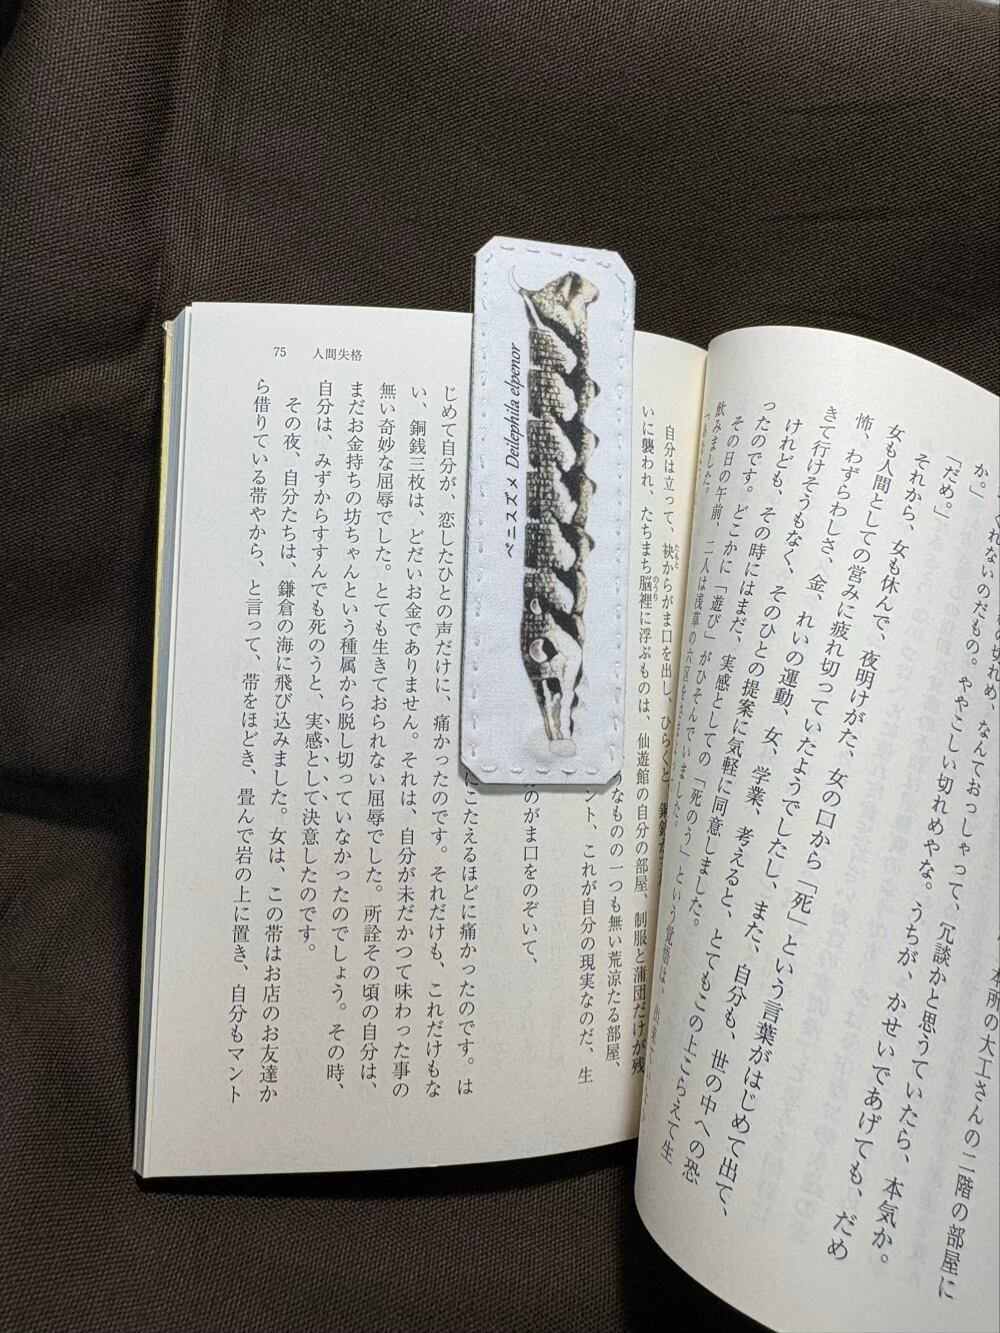 れないのだもの。ややこしい切れめやな。うちが、かせいであげても、だめ
か。」
「だめ。」
それから、女も休んで、夜明けがた、女の口から「死」という言葉がはじめて出て、
女も人間としての営みに疲れ切っていたようでしたし、また、自分も、世の中への恐
怖、わずらわしさ、金、れいの運動、女、学業、考えると、とてもこの上こらえて生
きて行けそうもなく、そのひとの提案に気軽に同意しました。
けれども、その時にはまだ、実感としての「死のう」という覚悟は、出来て
ったのです。どこかに「遊び」がひそんでいました。
その日の午前、二人は浅草の六区を
飲みました。
自分は立って、袂からがま口を出し、ひらくと、銅銭
たもと
いに襲われ、たちまち脳裡に浮ぶものは、仙遊館の自分の部屋、制服と蒲団だけが残
のうり
のなものの一つも無い荒涼たる部屋、
ント、これが自分の現実なのだ、生
のがま口をのぞいて、
にこたえるほどに痛かったのです。は
じめて自分が、恋したひとの声だけに、痛かったのです。それだけも、これだけもな
い、銅銭三枚は、どだいお金でありません。それは、自分が未だかつて味わった事の
無い奇妙な屈辱でした。とても生きておられない屈辱でした。所詮その頃の自分は、
まだお金持ちの坊ちゃんという種属から脱し切っていなかったのでしょう。その時、
自分は、みずからすすんでも死のうと、実感として決意したのです。
その夜、自分たちは、鎌倉の海に飛び込みました。女は、この帯はお店のお友達か
ら借りている帯やから、と言って、帯をほどき、畳んで岩の上に置き、自分もマント
75 人間失格
ベニスズメ Deilephila elpenor